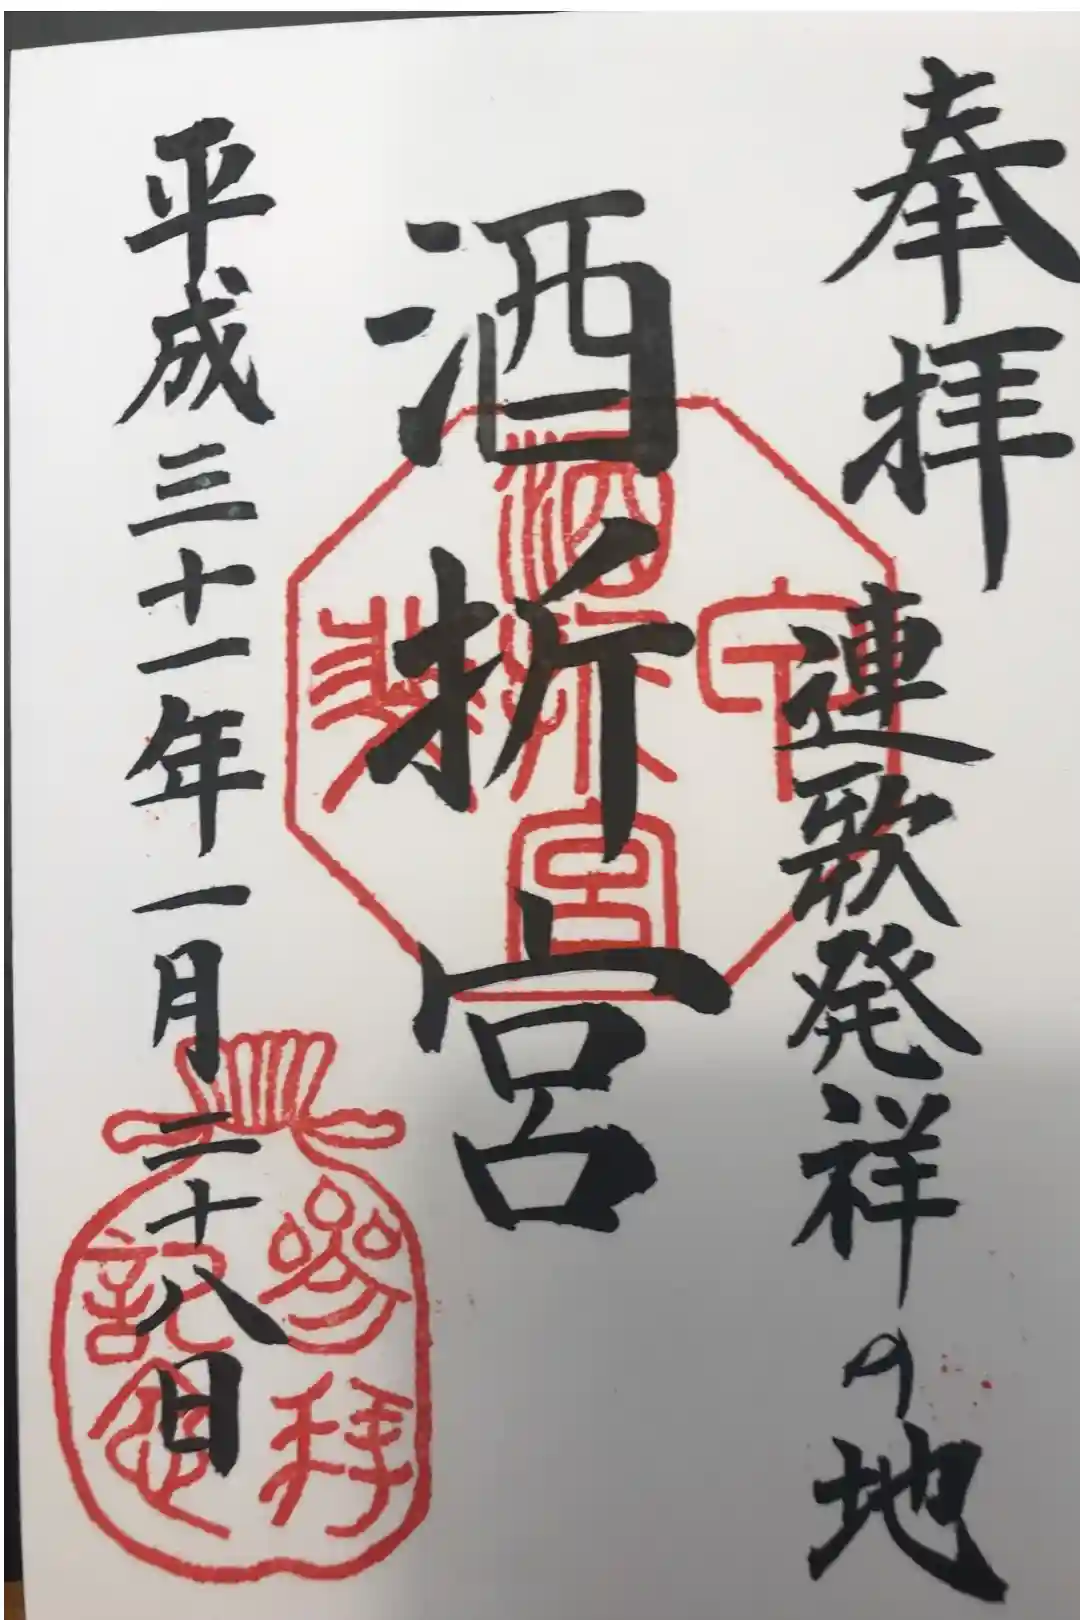 奉拝
連歌発祥の地
酒折宮
平成三十一年一月二十八日
酒折宮
參拜
記念